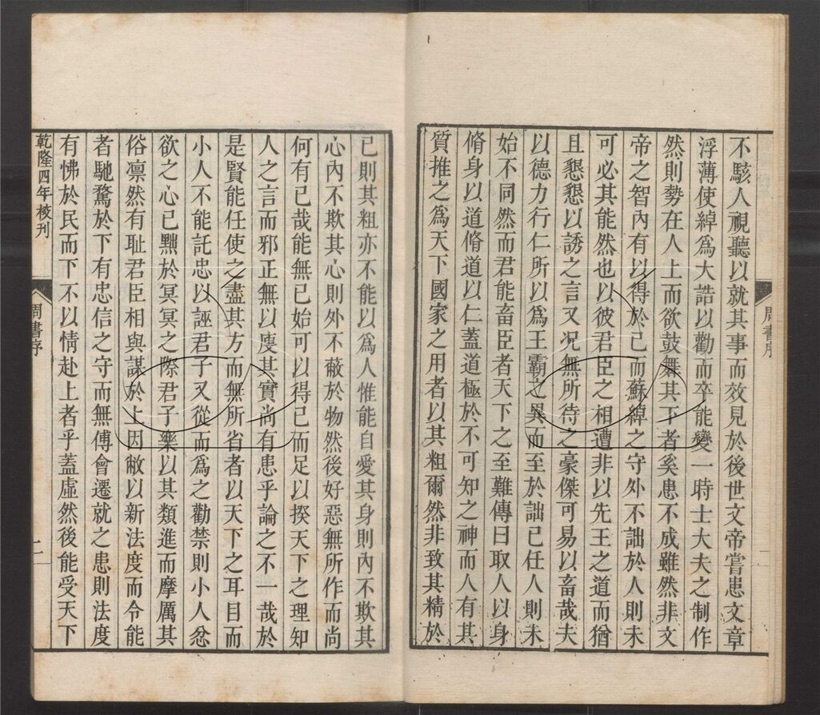 周書序
不駭人視聽以就其事而效見於後世文帝嘗患文章
浮薄使綽爲大誥以勸而卒能變一時士大夫之制作
然則勢在人上而欲鼓舞其下者奚患不成雖然非文
帝之智內有以得於己而蘇綽之守外不詘於人則未
可必其能然也以彼君臣之相遭非以先王之道而猶
且懇懇以誘之言又况無所待之豪傑可易以畜哉夫
以德力行仁所以爲王霸之異而至於詘己任人則未
始不同然而君能畜臣者天下之至難傳曰取人以身
脩身以道脩道以仁蓋道極於不可知之神而人有其
質推之爲天下國家之用者以其粗爾然非致其精於
已則其粗亦不能以爲人惟能自愛其身則內不欺其
心內不欺其心則外不蔽於物然後好惡無所作而尚
何有已哉能無已始可以得已而足以揆天下之理知
人之言而邪正無以廋其實尚有患乎論之不一哉於
是賢能任使之盡其方而無所省者以天下之耳目而
小人不能託忠以誣君子又從而爲之勸禁則小人忿
欲之心已黜於冥冥之際君子樂以其類進而摩厲其
俗凛然有耻君臣相與謀於上因敝以新法度而令能
者馳騖於下有忠信之守而無傅會遷就之患則法度
有怫於民而下不以情赴上者乎蓋虛然後能受天下
乾隆四年校刊
周書序
二